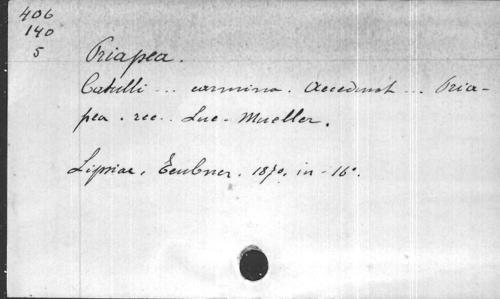 406
140
5
Priapea.
Catulli ... carmina. Accedunt ... Pria-
pea. rec. Luc. Mueller.
Lipsiae, Teubner. 1870. in-16°.